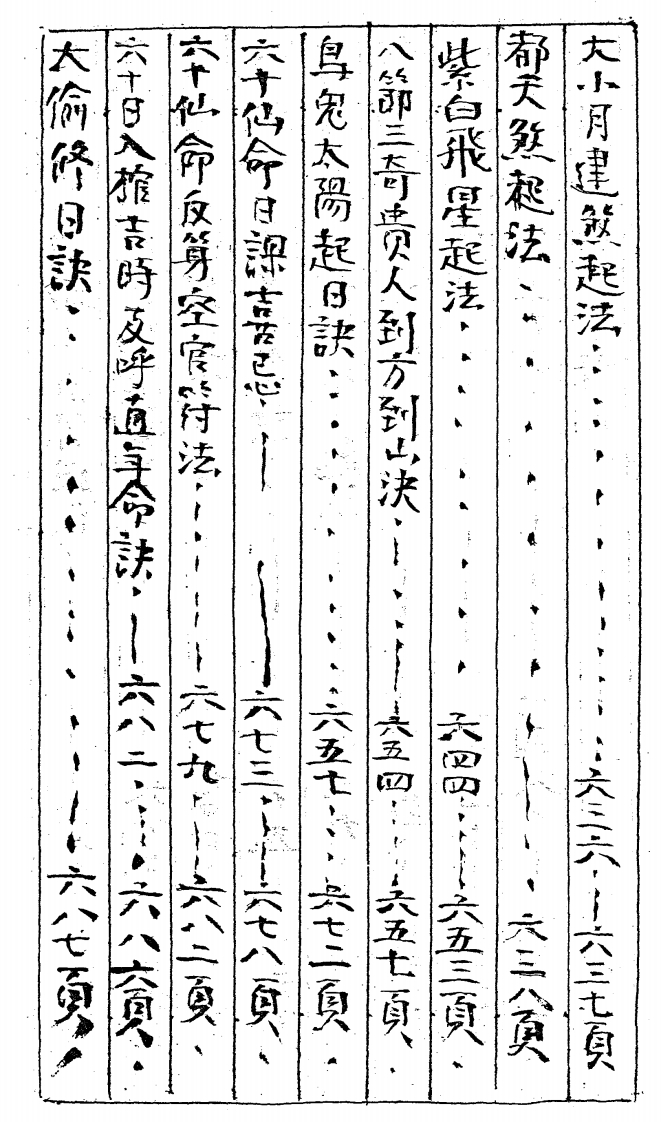 大小月建煞起法......六三六——六三七頁
都天煞起法......六三八頁
紫白飛星起法......六四四......六五三頁.
八節三奇貴人到方到山決......六五四......六五七頁.
烏兔太陽起日訣......六五七......六七二頁.
六十仙命日課喜忌——六七三......六七八頁.
六十仙命反算空官符法......六七九......六八二頁.
六十日入棺吉時及呼直年命訣——六八二......六八六頁.
大偷修日訣......六八七頁.